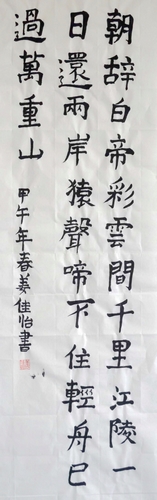 朝辞白帝彩雲間千里江陵一
日還兩岸猿聲啼不住輕舟已
過萬重山
甲午年春姜佳怡書